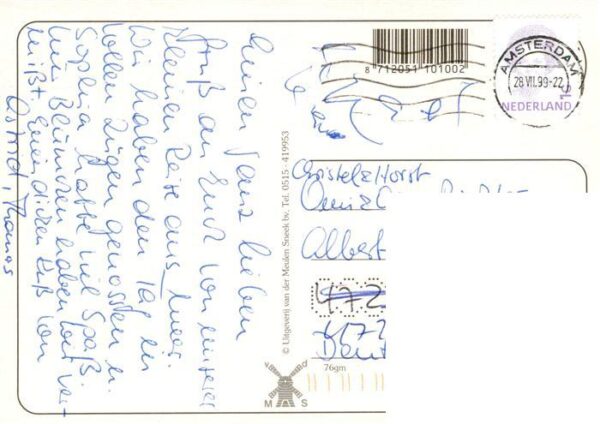 Einen ganz lieben
Gruß an Euch von unserer
kleinen Reise aus
Wir haben den Tag in
vollen Zügen genossen u.
Sophia hatte viel Spaß.
Nur Blümchen haben wir ver-
mißt. Einen dicken Kuß von
Astrid, Thomas
8 712051 101002
AMSTERDAM
28.VII.99-22
NEDERLAND
© Uitgeverij van der Meulen Sneek bv. Tel. 0515 - 419953
Christel & Horst
Omi &
Albert
472
472
Deut
76gm
v d
M S